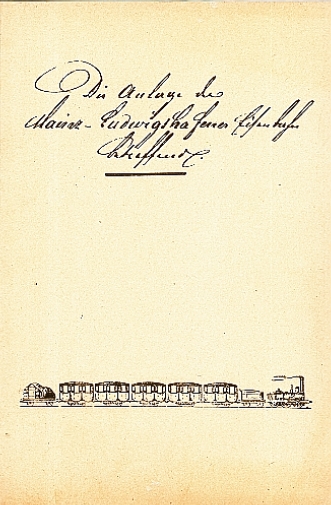 Die Anlage der
Mainz-Ludwigshafener Eisenbahn
betreffend.